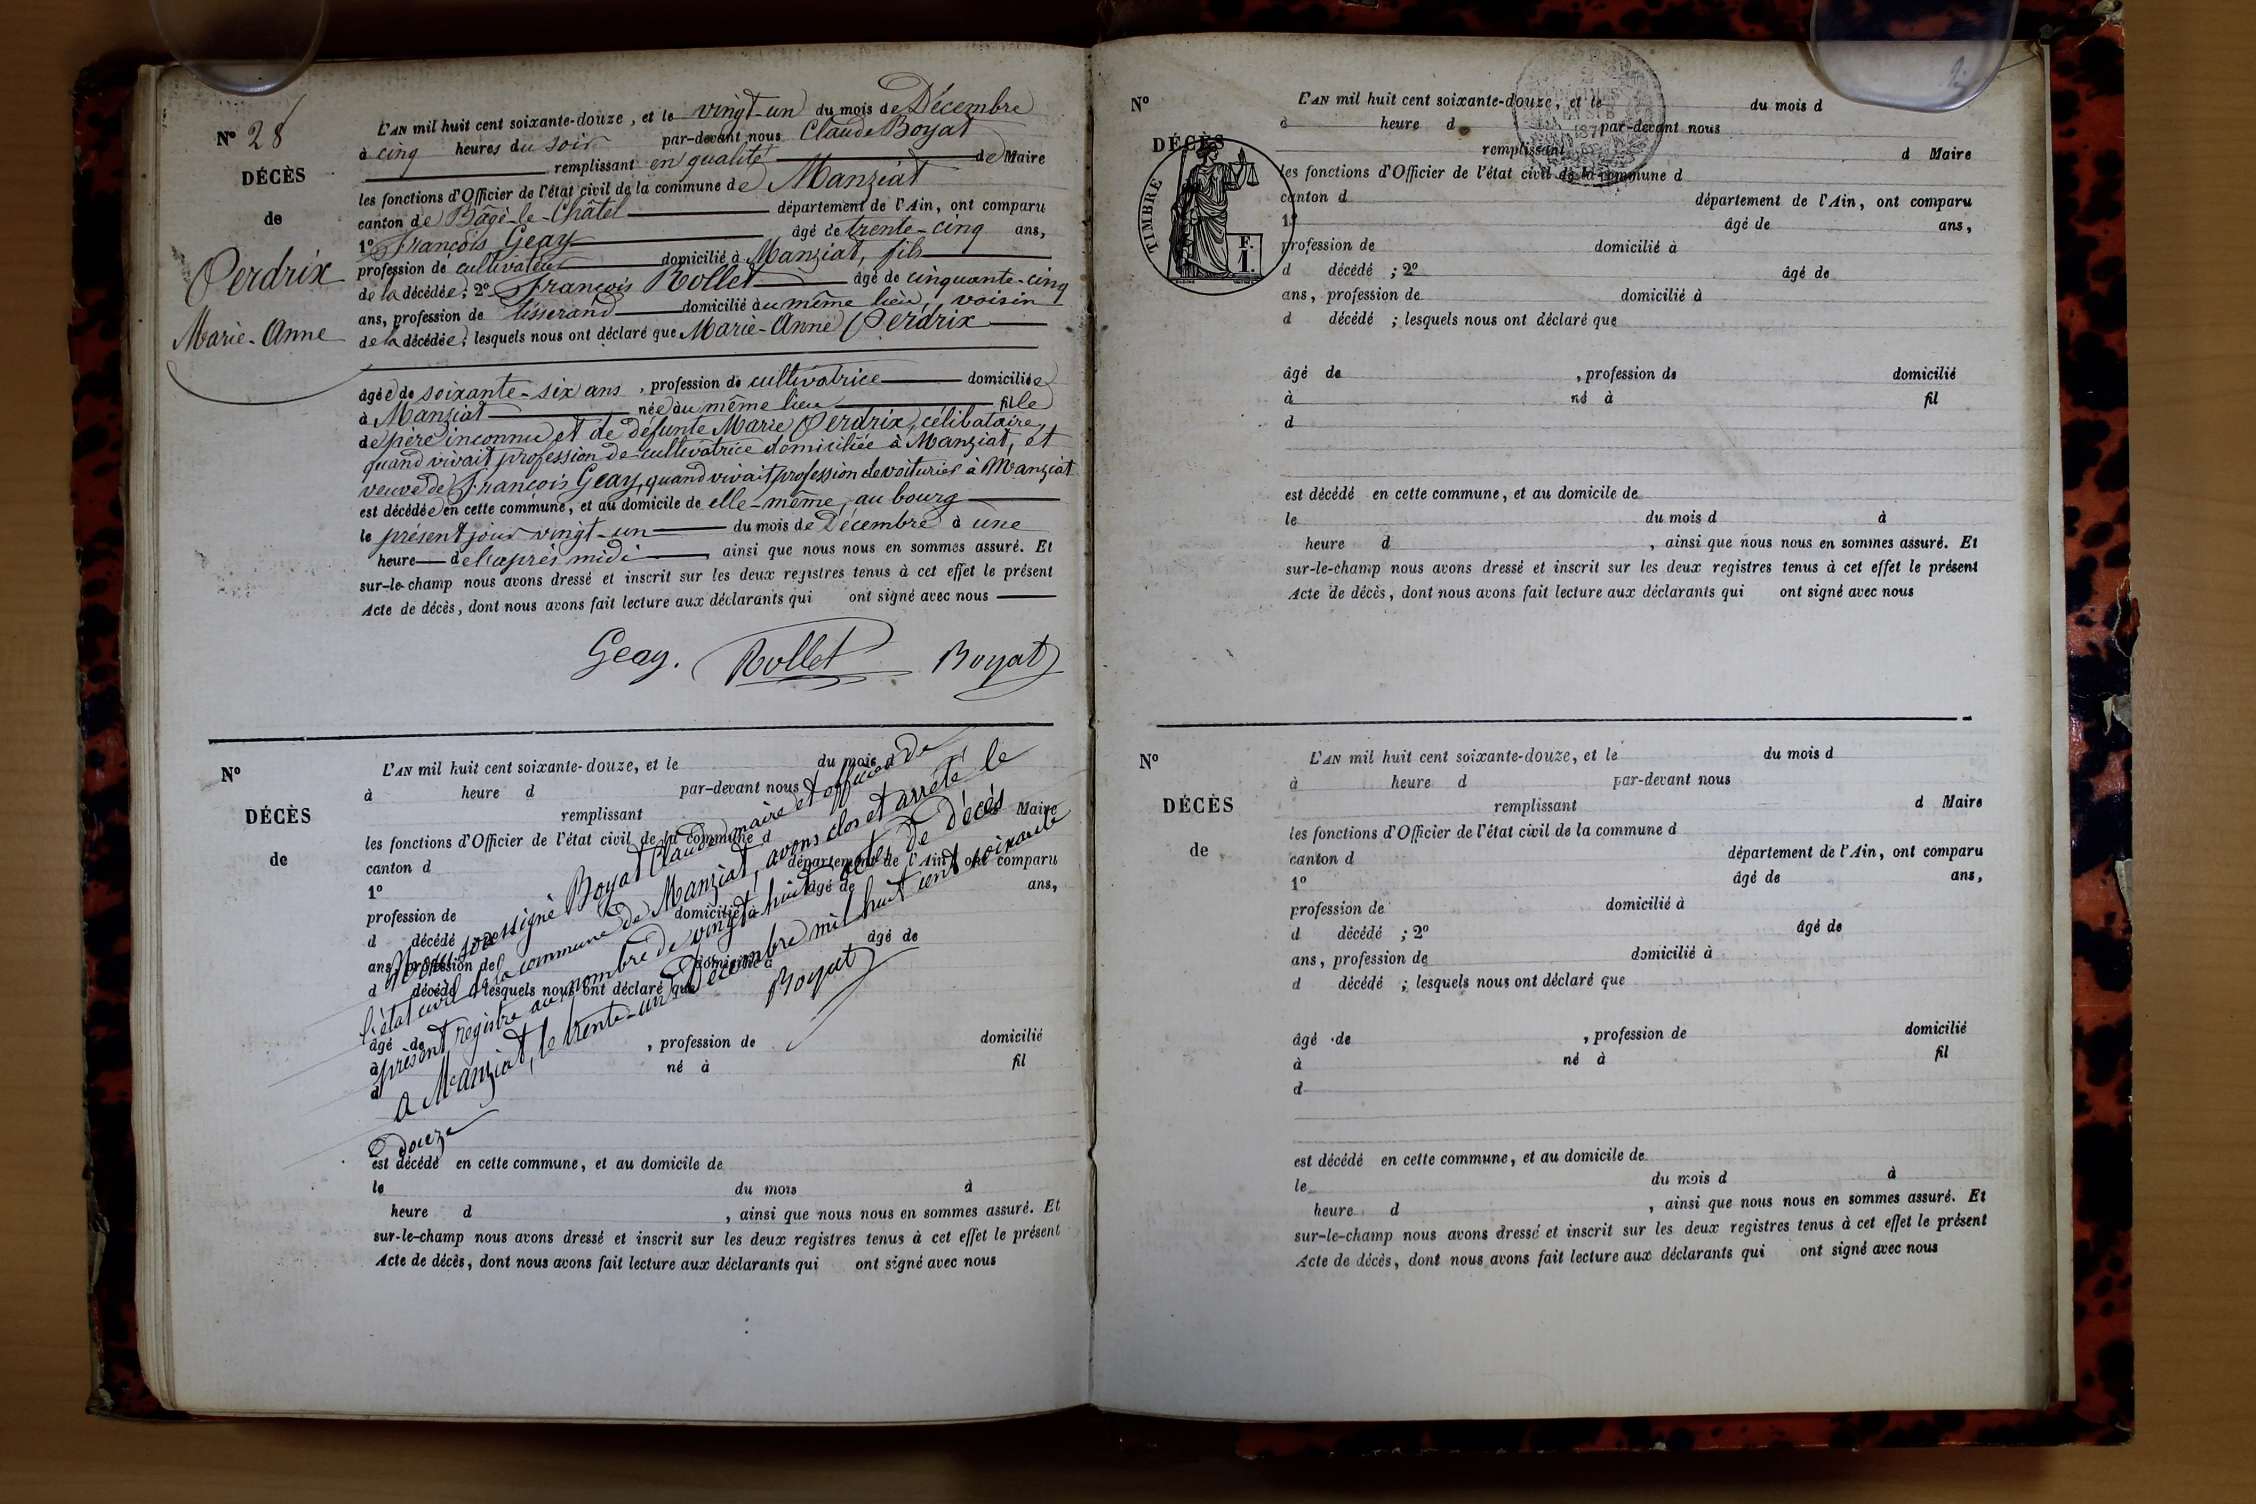 N° 28
DÉCÈS
de
Perdrix
Marie-Anne
L'AN mil huit cent soixante-douze, et le vingt-un du mois de Décembre
à cinq heures du soir par-devant nous Claude Boyat
remplissant en qualité de Maire
les fonctions d'Officier de l'état civil de la commune de Manziat
canton de Bâgé-le-Châtel département de l'Ain, ont comparu
1° François Geay âgé de trente-cinq ans,
profession de cultivateur domicilié à Manziat, fils
de la décédée; 2° François Rollet âgé de cinquante-cinq
ans, profession de tisserand domicilié au même lieu, voisin
de la décédée; lesquels nous ont déclaré que Marie-Anne Perdrix
âgée de soixante-six ans, profession de cultivatrice domiciliée
à Manziat née au même lieu fille
de père inconnu et de défunte Marie Perdrix, célibataire,
quand vivait profession de cultivatrice domiciliée à Manziat, et
veuve de François Geay, quand vivait profession de voiturier à Manziat
est décédée en cette commune, et au domicile de elle-même, au bourg
le présent jour vingt-un du mois de Décembre à une
heure de l'après midi, ainsi que nous nous en sommes assuré. Et
sur-le-champ nous avons dressé et inscrit sur les deux registres tenus à cet effet le présent
Acte de décès, dont nous avons fait lecture aux déclarants qui ont signé avec nous
Geay. Rollet Boyat
N°
DÉCÈS
de
L'AN mil huit cent soixante-douze, et le du mois d
à heure d par-devant nous
remplissant Maire
les fonctions d'Officier de l'état civil de la commune d
canton d département de l'Ain, ont comparu
1° âgé de ans,
profession de domicilié à
d décédé ; 2° âgé de
ans, profession de domicilié à
d décédé ; lesquels nous ont déclaré que
âgé de , profession de domicilié
à né à fil
d
Nous soussigné Boyat Claude maire et officier de
l'état civil de la commune de Manziat, avons clos et arrêté le
présent registre au nombre de vingt huit actes de décès
A Manziat, le trente-un Décembre mil huit cent soixante
douze
Boyat
est décédé en cette commune, et au domicile de
le du mois à
heure d , ainsi que nous nous en sommes assuré. Et
sur-le-champ nous avons dressé et inscrit sur les deux registres tenus à cet effet le présent
Acte de décès, dont nous avons fait lecture aux déclarants qui ont signé avec nous
N°
DÉCÈS
TIMBRE
F.
1.
L'AN mil huit cent soixante-douze, et le du mois d
à heure d par-devant nous
remplissant d Maire
les fonctions d'Officier de l'état civil de la commune d
canton d département de l'Ain, ont comparu
1° âgé de ans,
profession de domicilié à
d décédé ; 2° âgé de
ans, profession de domicilié à
d décédé ; lesquels nous ont déclaré que
âgé de , profession de domicilié
à né à fil
d
est décédé en cette commune, et au domicile de
le du mois d à
heure d , ainsi que nous nous en sommes assuré. Et
sur-le-champ nous avons dressé et inscrit sur les deux registres tenus à cet effet le présent
Acte de décès, dont nous avons fait lecture aux déclarants qui ont signé avec nous
N°
DÉCÈS
de
L'AN mil huit cent soixante-douze, et le du mois d
à heure d par-devant nous
remplissant d Maire
les fonctions d'Officier de l'état civil de la commune d
canton d département de l'Ain, ont comparu
1° âgé de ans,
profession de domicilié à
d décédé ; 2° âgé de
ans, profession de domicilié à
d décédé ; lesquels nous ont déclaré que
âgé de , profession de domicilié
à né à fil
d
est décédé en cette commune, et au domicile de
le du mois d à
heure d , ainsi que nous nous en sommes assuré. Et
sur-le-champ nous avons dressé et inscrit sur les deux registres tenus à cet effet le présent
Acte de décès, dont nous avons fait lecture aux déclarants qui ont signé avec nous